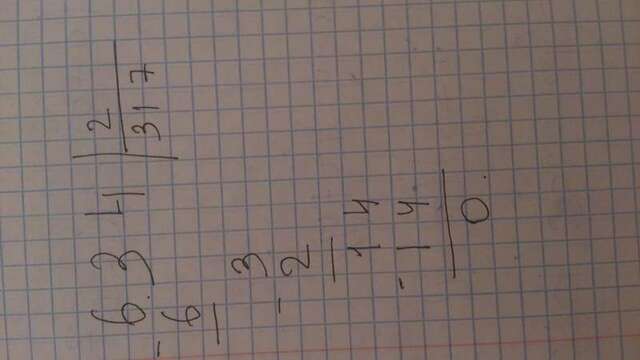 634 | 2
- 6 | 317
3
- 2
14
- 14
0